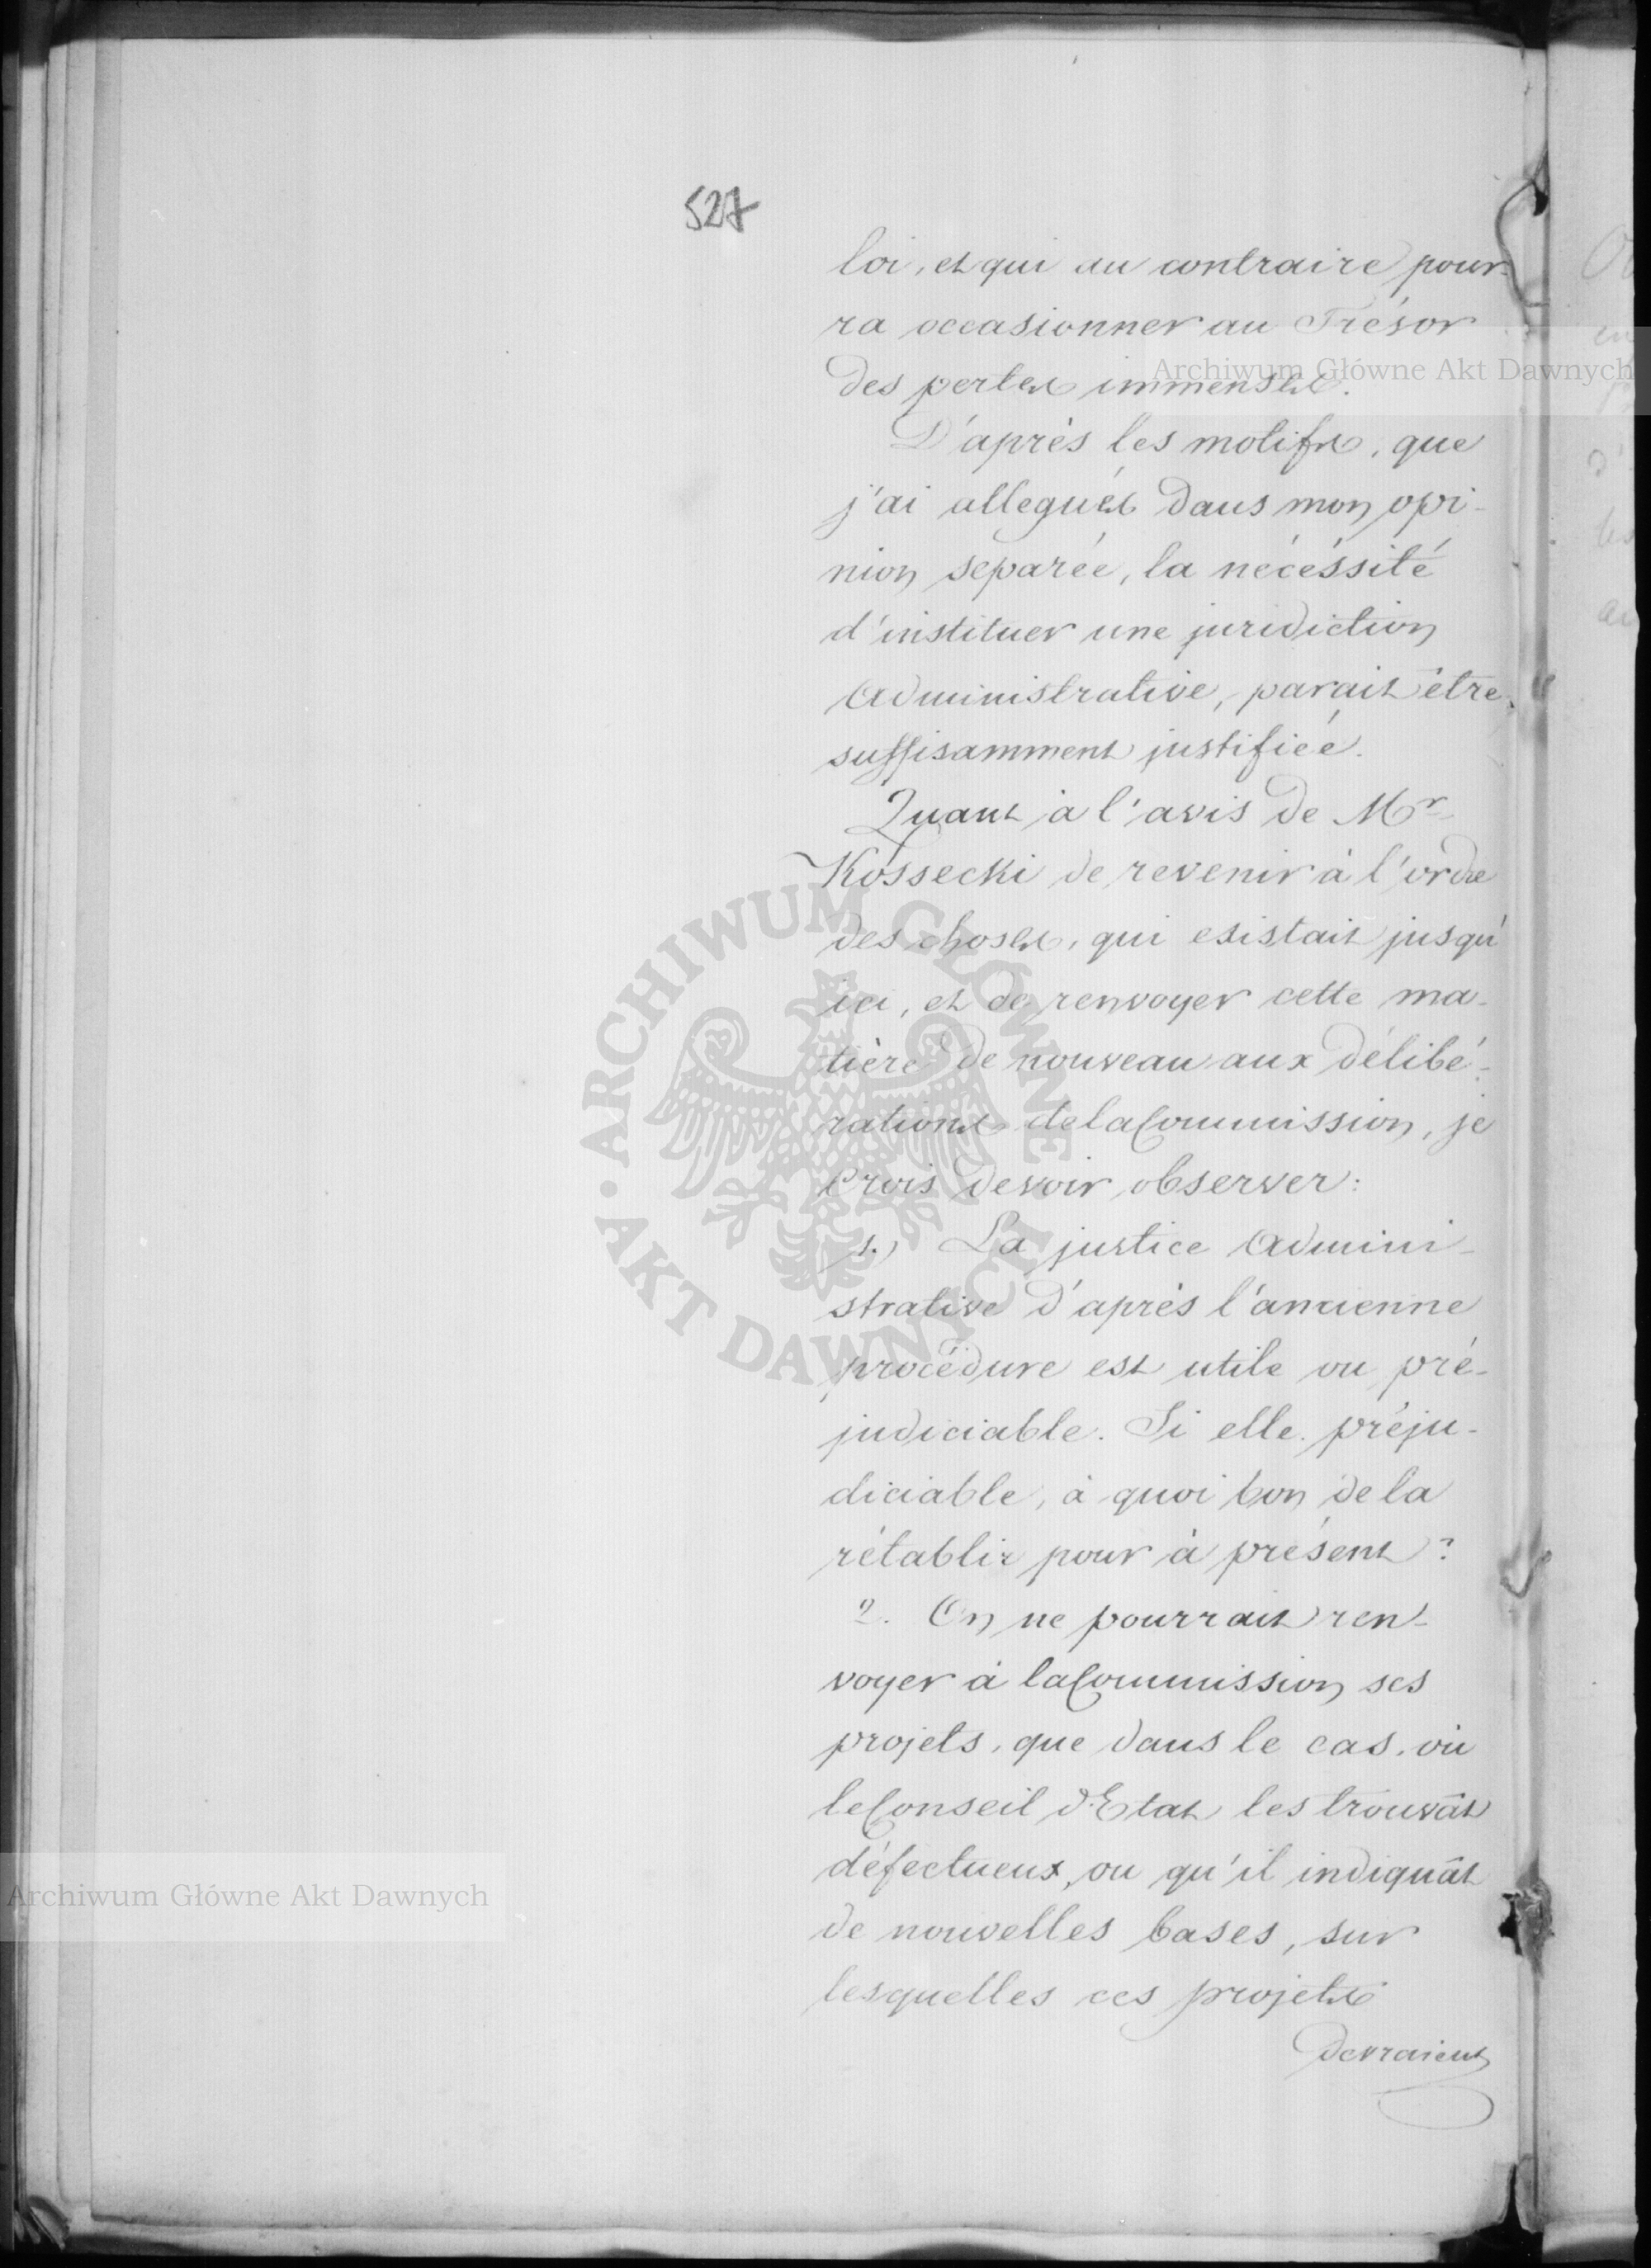 527
loi, et qui au contraire pour-
ra occasionner au Trésor
des pertes immenses.
D'après les motifs, que
j'ai allegués dans mon opi-
nion separée, la nécéssité
d'instituer une juridiction
Administrative, parait être
suffisamment justifiée.
Quant à l'avis de Mr
Kossecki de revenir à l'ordre
des choses, qui esistait jusqu'
ici, et de renvoyer cette ma-
tière de nouveau aux délibé-
rations de la Commission, je
crois devoir observer:
1.) La justice Admini-
strative d'après l'ancienne
procédure est utile ou pré-
judiciable. Si elle préju-
diciable, à quoi bon de la
rétablir pour à présent?
2. On ne pourrait ren-
voyer à la Commission ses
projets, que dans le cas, où
le Conseil d'Etat les trouvât
défectueux, ou qu'il indiquât
de nouvelles bases, sur
lesquelles ces projets
devraient
Archiwum Główne Akt Dawnych
ARCHIWUM GŁÓWNE AKT DAWNYCH
Archiwum Główne Akt Dawnych